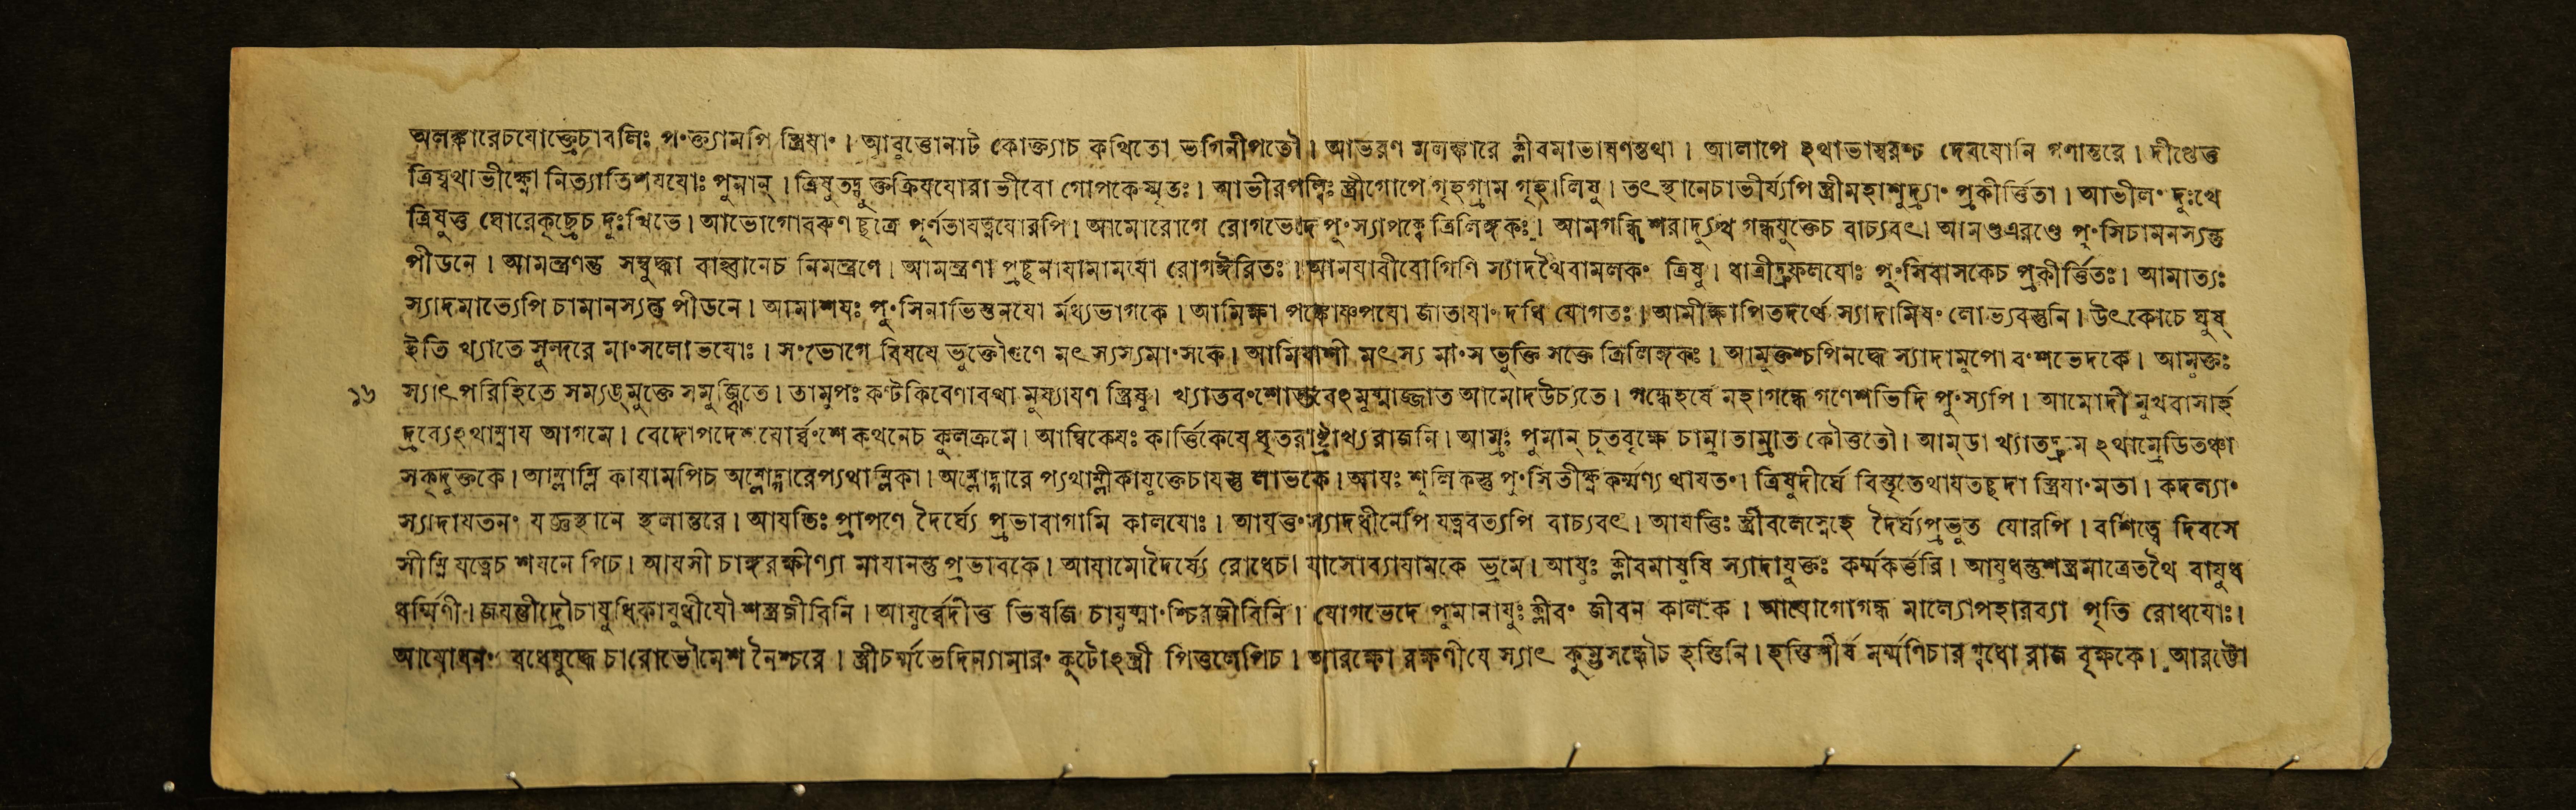 অলঙ্কারেচযোক্ত্রেচাবলিঃ পংক্ত্যামপি স্ত্রিযাং। আবুত্তোনাট কোক্ত্যাচ কথিতো ভগিনীপতৌ। আভরণ মলঙ্কারে ক্লীবমাভাষণন্তথা। আলাপে ঽথাভাস্বরশ্চ দেবযোনি গণান্তরে। দীপ্তেত্ত
ত্রিষ্বথাভীক্ষ্ণো নিত্যাতিশযযোঃ পুমান্। ত্রিষুতদ্যুক্তক্রিযযোরাভীবো গোপকেস্মৃতঃ। আভীরপল্লিঃ স্ত্রীগোপে গৃহগ্রাম গৃহালিষু। তৎস্থানেচাভীর্য্যপি স্ত্রীমহাশূদ্র্যাং প্রকীর্ত্তিতা। আভীলং দুঃখে
ত্রিষুত্ত ঘোরেকৃচ্ছ্রেচ দুঃখিতে। আভোগোবরুণ চ্ছত্রে পূর্ণতাযত্নযোরপি। আমোরোগে রোগভেদে পুংস্যাপক্বে ত্রিলিঙ্গকঃ। আমগন্ধি শরাদ্যুত্থ গন্ধযুক্তেচ বাচ্যবৎ। আমণ্ডএরণ্ডে পুংসিচামনস্যন্তু
পীডনে। আমন্ত্রণন্তু সম্বুদ্ধ্যা বাহ্বানেচ নিমন্ত্রণে। আমন্ত্রণা প্রচ্ছনাযামামযো রোগঈরিতঃ। আমযাবীরোগিণি স্যাদথৈবামলকং ত্রিষু। ধাত্রীদ্রুফলযোঃ পুংসিবাসকেচ প্রকীর্ত্তিতঃ। আমাত্যঃ
স্যাদমাত্যেপি চামানস্যন্তু পীডনে। আমাশযঃ পুংসিনাভিস্তনযো র্মধ্যভাগকে। আমিক্ষা পক্কোষ্ণপযো জাতাযাং দধি যোগতঃ। আমীক্ষাপিতদর্থে স্যাদামিষং লোভ্যবস্তুনি। উৎকোচে ঘুষ্
ইতি খ্যাতে সুন্দরে মাংসলোভযোঃ। সংভোগে বিষযে ভুক্তৌগুণে মৎস্যস্যমাংসকে। আমিষাশী মৎস্য মাংস ভুক্তি সক্তে ত্রিলিঙ্গকঃ। আমুক্তশ্চপিনদ্ধে স্যাদামুপো বংশভেদকে। আমুক্তঃ
১৬ স্যাৎপরিহিতে সম্যঙ্মুক্তে সমুজ্ঝিতে। তামুপঃ কণ্টকিবেণাবথা মুষ্যাযণ স্ত্রিষু। খ্যাতবংশোদ্ভবেঽমুষ্মাজ্জাত আমোদউচ্যতে। গন্ধেহর্ষে মহাগন্ধে গণেশভিদি পুংস্যপি। আমোদী মুখবাসার্হ
দ্রব্যেঽথাম্নায আগমে। বেদোপদেশযোর্ব্বংশে কথনেচ কুলক্রমে। আম্বিকেযঃ কার্ত্তিকেযে ধৃতরাষ্ট্রাখ্য রাজনি। আম্রঃ পুমান্ চূতবৃক্ষে চাম্রাতাম্রাত কৌত্ততৌ। আম্ডা খ্যাতদ্রুম ঽথাম্রেডিতঞ্চা
সকৃদুক্তকে। আম্লাম্লি কাযামপিচ অম্লোদ্গারেপ্যথাম্লিকা। অম্লোদ্গারে প্যথাম্লীকাযুক্তেচাযস্তু লাভকে। আযঃ শূলিকস্তু পুংসিতীক্ষ্ণকর্ম্মণ্য থাযতং। ত্রিষুদীর্ঘে বিস্তৃতেথাযতচ্ছদা স্ত্রিযাংমতা। কদল্যাং
স্যাদাযতনং যজ্ঞস্থানে স্থলান্তরে। আযতিঃ প্রাপণে দৈর্ঘ্যে প্রভাবাগামি কালযোঃ। আযত্তংস্যাদধীনেপি যত্নবত্যপি বাচ্যবৎ। আযত্তিঃ স্ত্রীবলেস্নেহে দৈর্ঘ্যপ্রভুত যোরপি। বশিত্বে দিবসে
সীম্নি যত্নেচ শযনে পিচ। আযসী চাঙ্গরক্ষীণ্যা মাযানন্তু প্রভাবকে। আযামোদৈর্ঘ্যে রোধেচ। যাসোব্যাযামকে ভ্রমে। আযুঃ ক্লীবমাযুষি স্যাদাযুক্তঃ কর্ম্মকর্ত্তরি। আযুধন্তুশস্ত্রমাত্রেতথৈ বাযুধ
ধর্ম্মিণী। জযন্তীদ্রৌচাযুধিকাযুধীযৌ শস্ত্রজীবিনি। আযুর্ব্বেদীত্ত ভিষজি চাযুষ্মাংশ্চিরজীবিনি। যোগভেদে পুমানাযুঃক্লীবং জীবন কালকে। আযোগোগন্ধ মাল্যোপহারব্যা পৃতি রোধযোঃ।
আযোধনং বধেযুদ্ধে চারোভৌমেশ নৈশ্চরে। স্ত্রীচর্ম্মভেদিন্যামারং কূটোঽস্ত্রী পিত্তলেপিচ। আরক্ষো রক্ষণীযে স্যাৎ কুম্ভসন্ধৌচ হস্তিনি। হস্তিশীর্ষ মর্ম্মণিচার গ্বধো রাজ বৃক্ষকে। আরট্টো